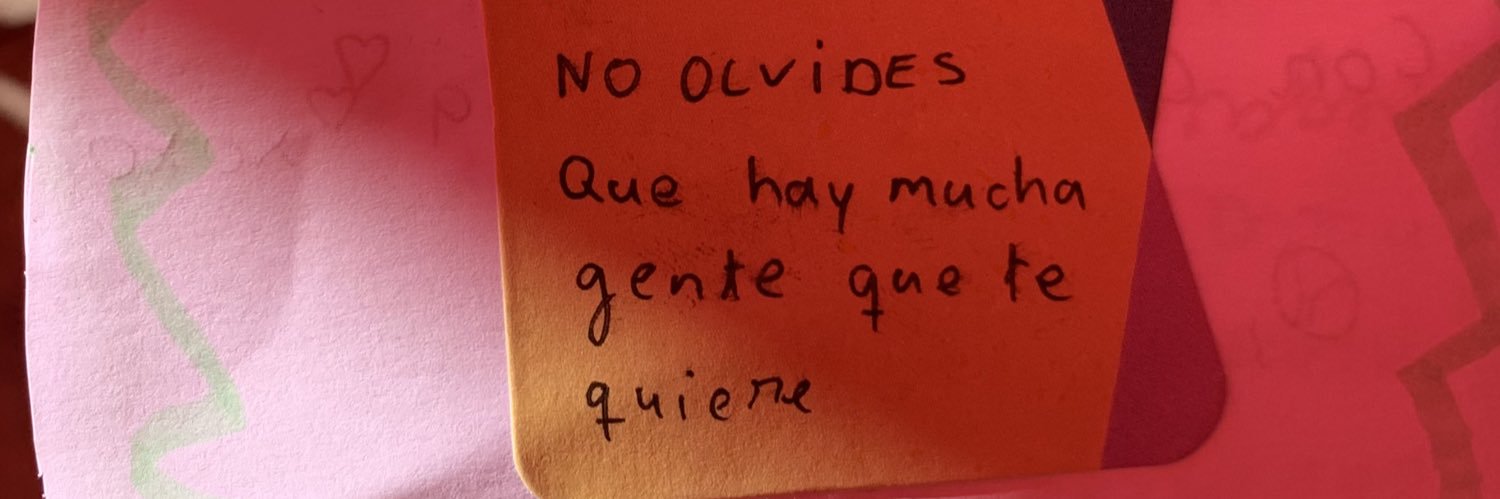 NO OLViDES
Que hay mucha
gente que te
quiere